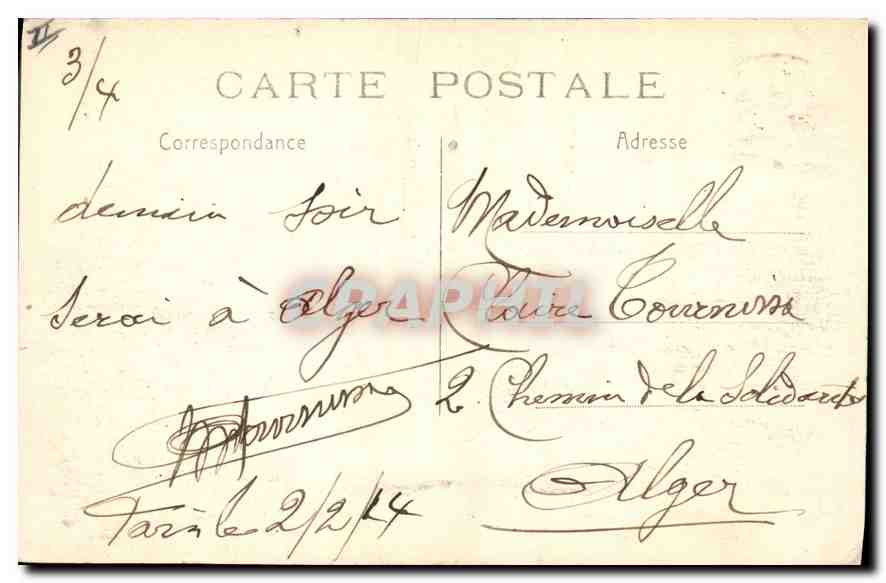 II
3/4
CARTE POSTALE
Correspondance
demain soir
serai à Alger
Tournissa
Paris le 2/2/14
Adresse
Mademoiselle
Claire Tournissa
2 Chemin de la Solidarité
Alger
CPAPHIL